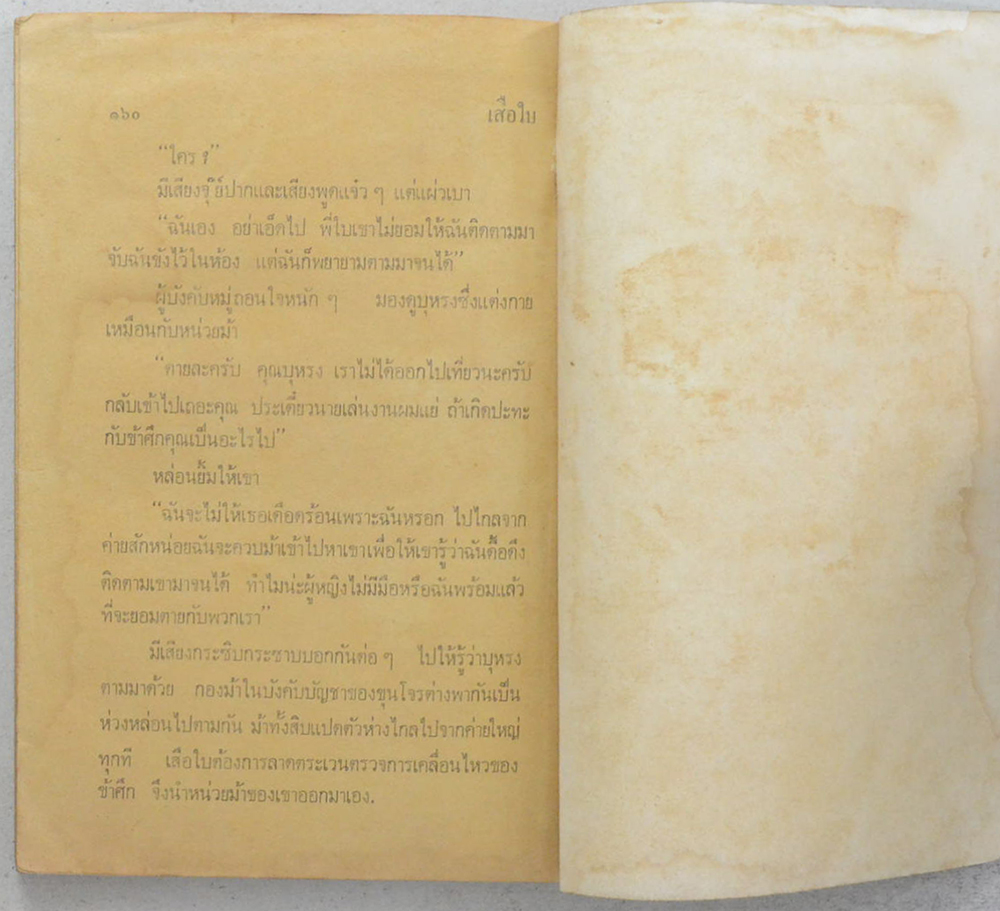 ๑๖๐ เสือใบ
“ใคร ?”
มีเสียงจุ๊ย์ปากและเสียงพูดแจ๋ว ๆ แต่แผ่วเบา
“ฉันเอง อย่าเอ็ดไป พี่ใบเขาไม่ยอมให้ฉันติดตามมา
จับฉันขังไว้ในห้อง แต่ฉันก็พยายามตามมาจนได้”
ผู้บังคับหมู่ถอนใจหนัก ๆ มองดูบุหรงซึ่งแต่งกาย
เหมือนกับหน่วยม้า
“ตายละครับ คุณบุหรง เราไม่ได้ออกไปเที่ยวนะครับ
กลับเข้าไปเถอะคุณ ประเดี๋ยวนายเล่นงานผมแย่ ถ้าเกิดปะทะ
กับข้าศึกคุณเป็นอะไรไป”
หล่อนยิ้มให้เขา
“ฉันจะไม่ให้เธอเดือดร้อนเพราะฉันหรอก ไปไกลจาก
ค่ายสักหน่อยฉันจะควบม้าเข้าไปหาเขาเพื่อให้เขารู้ว่าฉันดื้อดึง
ติดตามเขามาจนได้ ทำไมน่ะผู้หญิงไม่มีมือหรือฉันพร้อมแล้ว
ที่จะยอมตายกับพวกเรา”
มีเสียงกระซิบกระซาบบอกกันต่อ ๆ ไปให้รู้ว่าบุหรง
ตามมาด้วย กองม้าในบังคับบัญชาของขุนโจรต่างพากันเป็น
ห่วงหล่อนไปตามกัน ม้าทั้งสิบแปดตัวห่างไกลไปจากค่ายใหญ่
ทุกที เสือใบต้องการลาดตระเวนตรวจการเคลื่อนไหวของ
ข้าศึก จึงนำหน่วยม้าของเขาออกมาเอง.